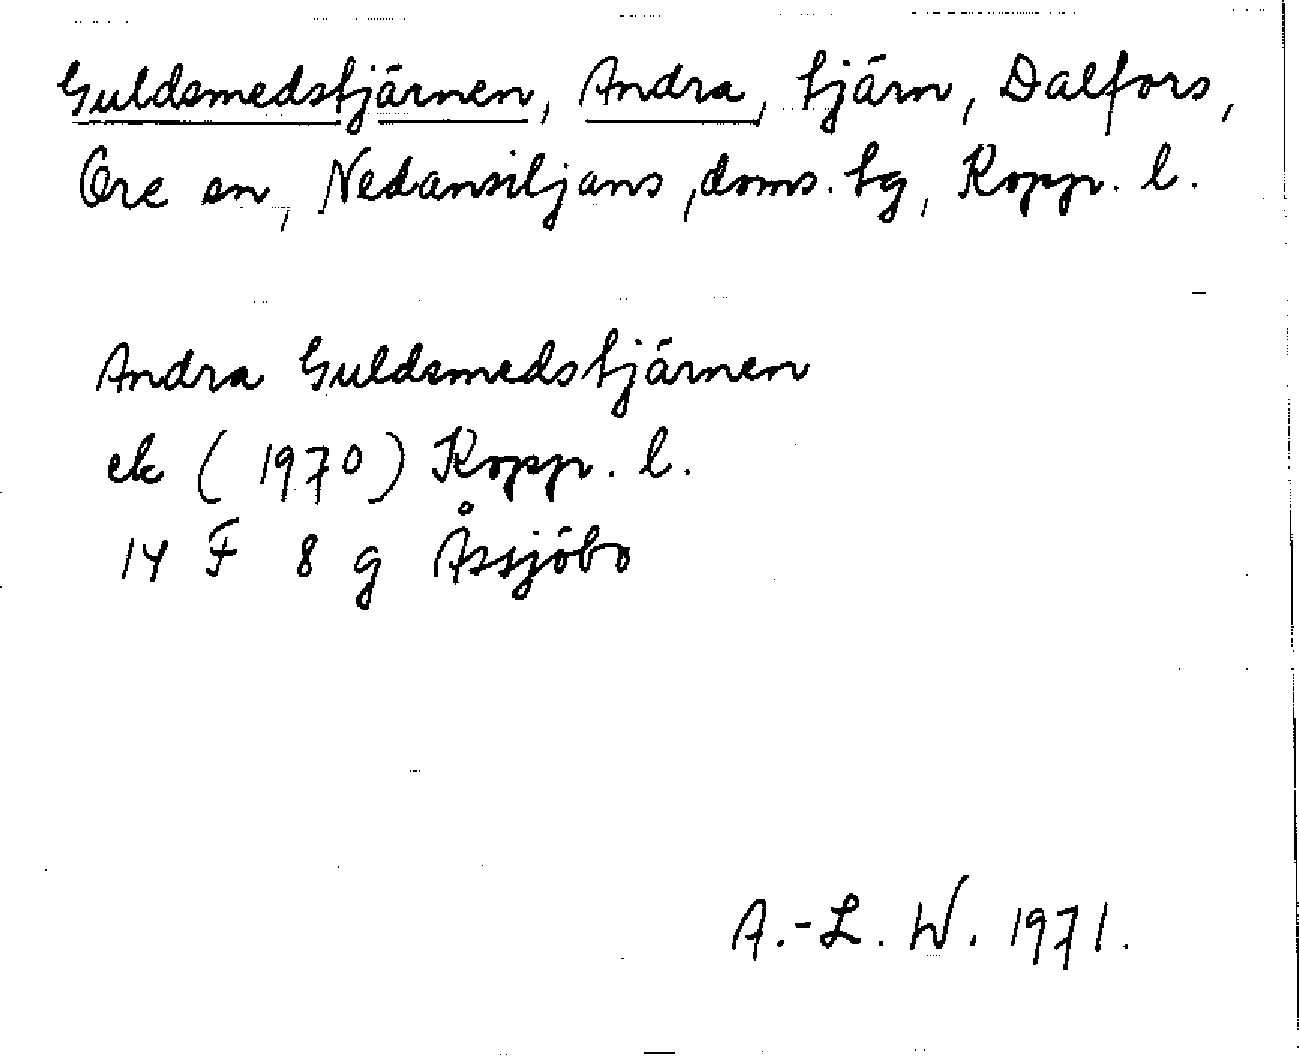 Guldsmedstjärnen, Andra, tjärn, Dalfors,
Ore sn, Nedansiljans, doms. tg, Kopp. l.
Andra Guldsmedstjärnen
ek (1970) Kopp. l.
14 F 8 g Åssjöbo
A.-L. W. 1971.